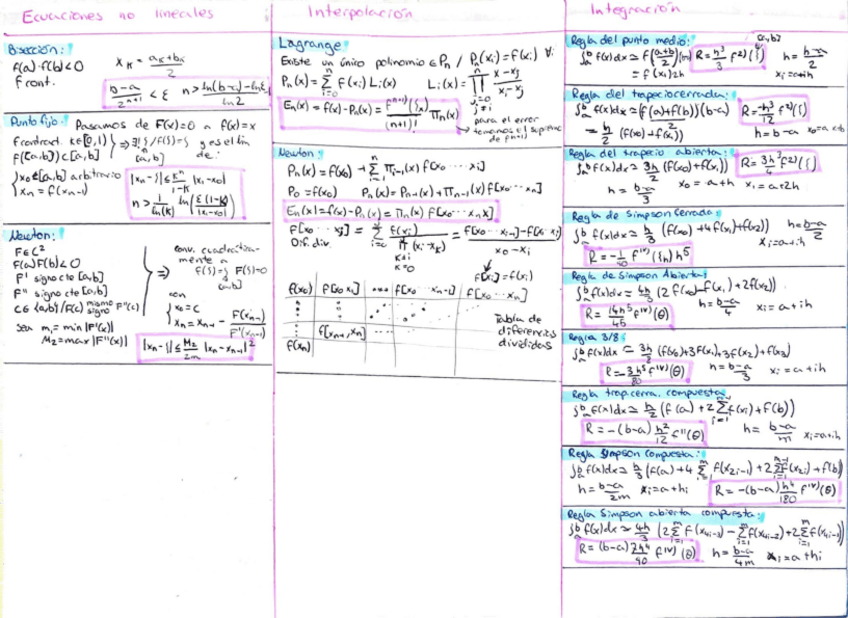 Ecuaciones no lineales
Bisección:
f(a)·f(b)<0
f cont.
x_k = (a_k+b_k)/2
(b-a)/2^(n+1) < ε   n > (ln(b-a)-ln ε)/ln 2
Punto fijo: Pasamos de F(x)=0 a f(x)=x
f contract. k∈[0,1)
f([a,b])⊂[a,b]
x_0∈[a,b] arbitrario
x_n = f(x_{n-1})
|x_n-ξ| ≤ k^n/(1-k) |x_1-x_0|
n > 1/ln(k) ln(ε(1-k)/|x_1-x_0|)
Newton:
F∈C²
F(a)F(b)<0
F' signo cte [a,b]
F'' signo cte [a,b]
c∈{a,b}/F(c) mismo signo F''(c)
conv. cuadráticamente a
con
x_0=c
x_n = x_{n-1} - F(x_{n-1})/F'(x_{n-1})
Sea m_1=min|F'(x)|
M_2=max|F''(x)|
|x_n-ξ| ≤ M_2/2m_1 |x_n-x_{n-1}|²
Interpolación
Lagrange:
Existe un único polinomio ∈P_n / P_n(x_i)=f(x_i) ∀i
P_n(x)=∑_{i=0}^n f(x_i) L_i(x)   L_i(x)=∏_{j=0, j≠i}^n (x-x_j)/(x_i-x_j)
E_n(x)=f(x)-P_n(x)= f^{n+1)}(ξ_x)/(n+1)! ∏_n(x)
para el error
tomamos el supremo
de f^{n+1)}
Newton:
P_n(x)=f(x_0)+∑_{i=1}^n ∏_{i-1}(x) f[x_0...x_i]
P_0=f(x_0)   P_n(x)=P_{n-1}(x)+∏_{n-1}(x) f[x_0...x_n]
E_n(x)=f(x)-P_n(x)=∏_n(x) f[x_0...x_n x]
Dif. div.
f[x_i]=f(x_i)
f(x_0) f[x_0 x_1] ... f[x_0...x_{n-1}] f[x_0...x_n]
f[x_{n-1},x_n]
f(x_n)
Tabla de
diferencias
divididas
Integración
Regla del punto medio:
∫_a^b f(x)dx ≃ f((a+b)/2)   R=h³/3 f²)(ξ)   h=(b-a)/2
= f(x_1)2h   x_1=a+h
Regla del trapecio cerrada:
∫_a^b f(x)dx ≃ (f(a)+f(b))(b-a)   R=-h³/12 f²)(ξ)
= h/2 (f(x_0)+f(x_1))   h=b-a
Regla del trapecio abierta:
∫_a^b f(x)dx ≃ 3h/2 (f(x_0)+f(x_1))   R=3h³/4 f²)(ξ)
h=(b-a)/3   x_0=a+h   x_1=a+2h
Regla de Simpson Cerrada:
∫_a^b f(x)dx ≃ h/3 (f(x_0)+4f(x_1)+f(x_2))   h=(b-a)/2
R=-1/90 f^{IV)}(ξ_h) h⁵   x_i=a+ih
Regla de Simpson Abierta:
∫_a^b f(x)dx ≃ 4h/3 (2f(x_0)-f(x_1)+2f(x_2))
R=14h⁵/45 f^{IV)}(θ)   h=(b-a)/4   x_i=a+ih
Regla 3/8:
∫_a^b f(x)dx ≃ 3h/8 (f(x_0)+3f(x_1)+3f(x_2)+f(x_3))
R=-3h⁵/80 f^{IV)}(θ)   h=(b-a)/3   x_i=a+ih
Regla trap. cerra. compuesta
∫_a^b f(x)dx ≃ h/2 (f(a)+2∑f(x_i)+f(b))
R=-(b-a)h²/12 f''(θ)   h=(b-a)/m   x_i=a+ih
Regla Simpson Compuesta:
∫_a^b f(x)dx ≃ h/3 (f(a)+4∑f(x_{2i-1})+2∑f(x_{2i})+f(b))
h=(b-a)/2m   x_i=a+hi   R=-(b-a)h⁴/180 f^{IV)}(θ)
Regla Simpson abierta compuesta:
∫_a^b f(x)dx ≃ 4h/3 (2∑f(x_{4i-3})-∑f(x_{4i-2})+2∑f(x_{4i-1}))
R=(b-a)7h⁴/90 f^{IV)}(θ)   h=(b-a)/4m   x_i=a+hi